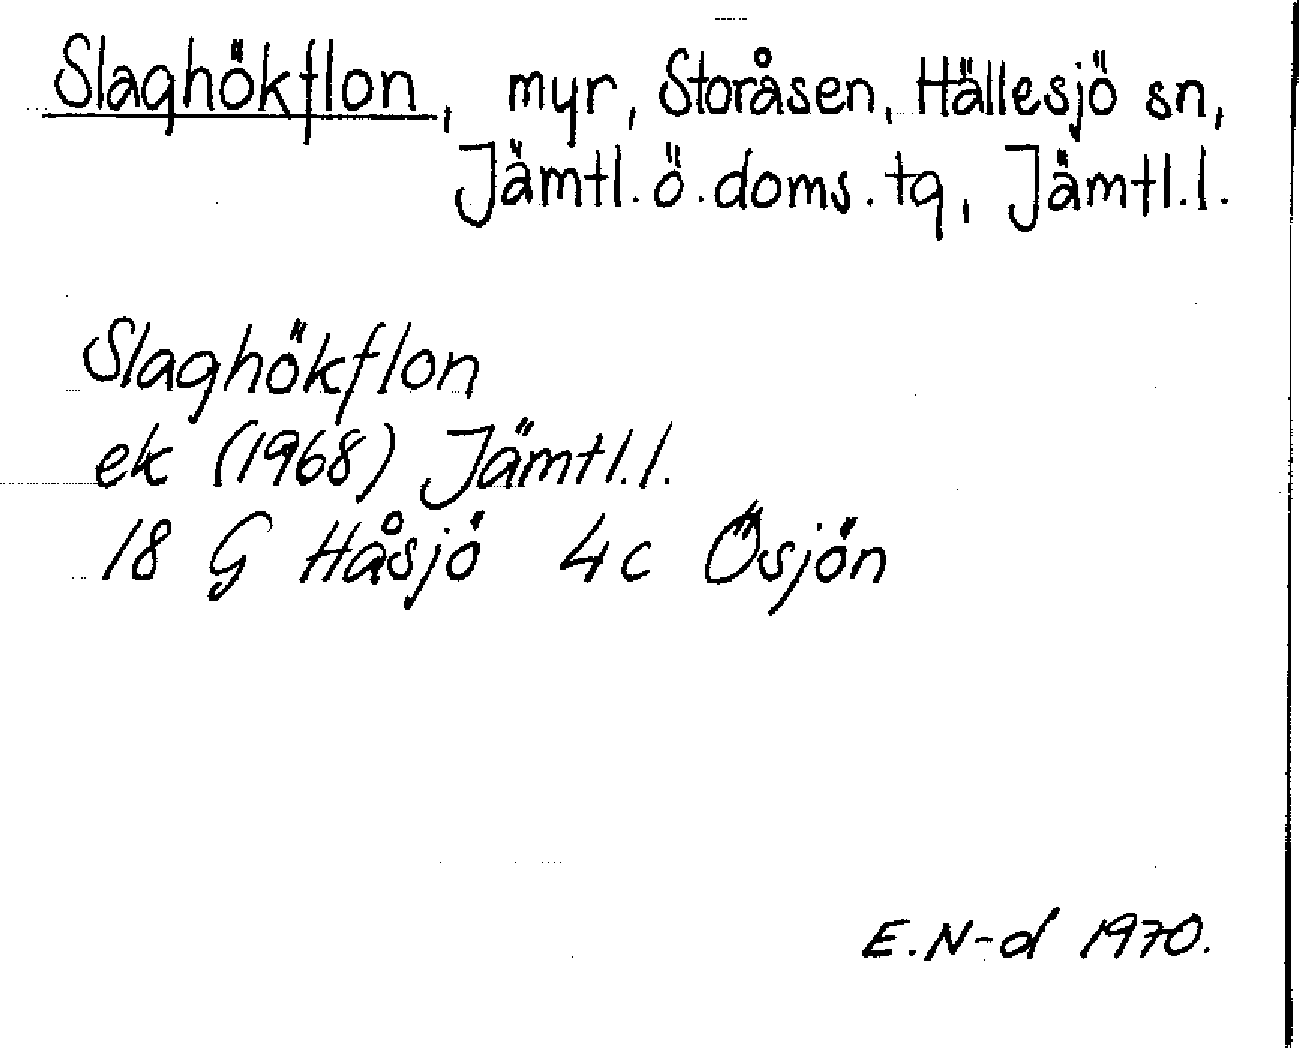 Slaghökflon, myr, Storåsen, Hällesjö sn,
Jämtl. ö. doms. tg, Jämtl. l.
Slaghökflon
ek (1968) Jämtl. l.
18 G Håsjö 4c Ösjön
E. N-d 1970.